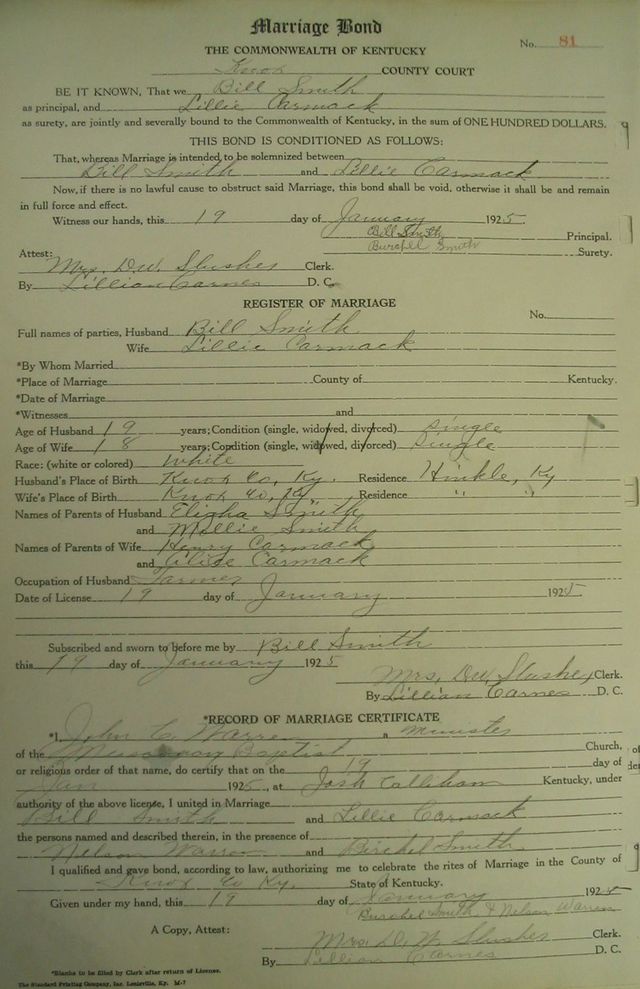 Marriage Bond
No. 81
THE COMMONWEALTH OF KENTUCKY
Knox COUNTY COURT
BE IT KNOWN, That we Bill Smith
as principal, and Lillie Carmack
as surety, are jointly and severally bound to the Commonwealth of Kentucky, in the sum of ONE HUNDRED DOLLARS.
THIS BOND IS CONDITIONED AS FOLLOWS:
That, whereas Marriage is intended to be solemnized between
Bill Smith and Lillie Carmack
Now, if there is no lawful cause to obstruct said Marriage, this bond shall be void, otherwise it shall be and remain
in full force and effect.
Witness our hands, this 19 day of January 1925.
Bill Smith Principal.
Burchel Smith Surety.
Attest:
Mrs. D.W. Slusher Clerk.
By Lillian Carnes D. C.
REGISTER OF MARRIAGE
No.
Full names of parties, Husband Bill Smith
Wife Lillie Carmack
*By Whom Married
*Place of Marriage County of Kentucky.
*Date of Marriage
*Witnesses and
Age of Husband 19 years; Condition (single, widowed, divorced) Single
Age of Wife 18 years; Condition (single, widowed, divorced) Single
Race: (white or colored) White
Husband's Place of Birth Knox Co, Ky. Residence Hinkle, Ky
Wife's Place of Birth Knox Co, Ky. Residence " "
Names of Parents of Husband Eligha Smith
and Mollie Smith
Names of Parents of Wife Henry Carmack
and Carmack
Occupation of Husband Farmer
Date of License 19 day of January 1925
Subscribed and sworn to before me by Bill Smith
this 19 day of January 1925
Mrs. D.W. Slusher, Clerk.
By Lillian Carnes D. C.
*RECORD OF MARRIAGE CERTIFICATE
*I, John C. Warren a minister
of the Missionary Baptist Church,
or religious order of that name, do certify that on the 19 day of
Jan 1925, at Josh Callihan Kentucky, under
authority of the above license, I united in Marriage
Bill Smith and Lillie Carmack
the persons named and described therein, in the presence of
Nelson Warren and Birchel Smith
I qualified and gave bond, according to law, authorizing me to celebrate the rites of Marriage in the County of
Knox Co Ky. State of Kentucky.
Given under my hand, this 19 day of January 1925
Burchel Smith & Nelson Warren
A Copy, Attest: Mrs. D. W. Slusher Clerk.
By Lillian Carnes D. C.
*Blanks to be filed by Clerk after return of License.
The Standard Printing Company, Inc. Louisville, Ky. M-7